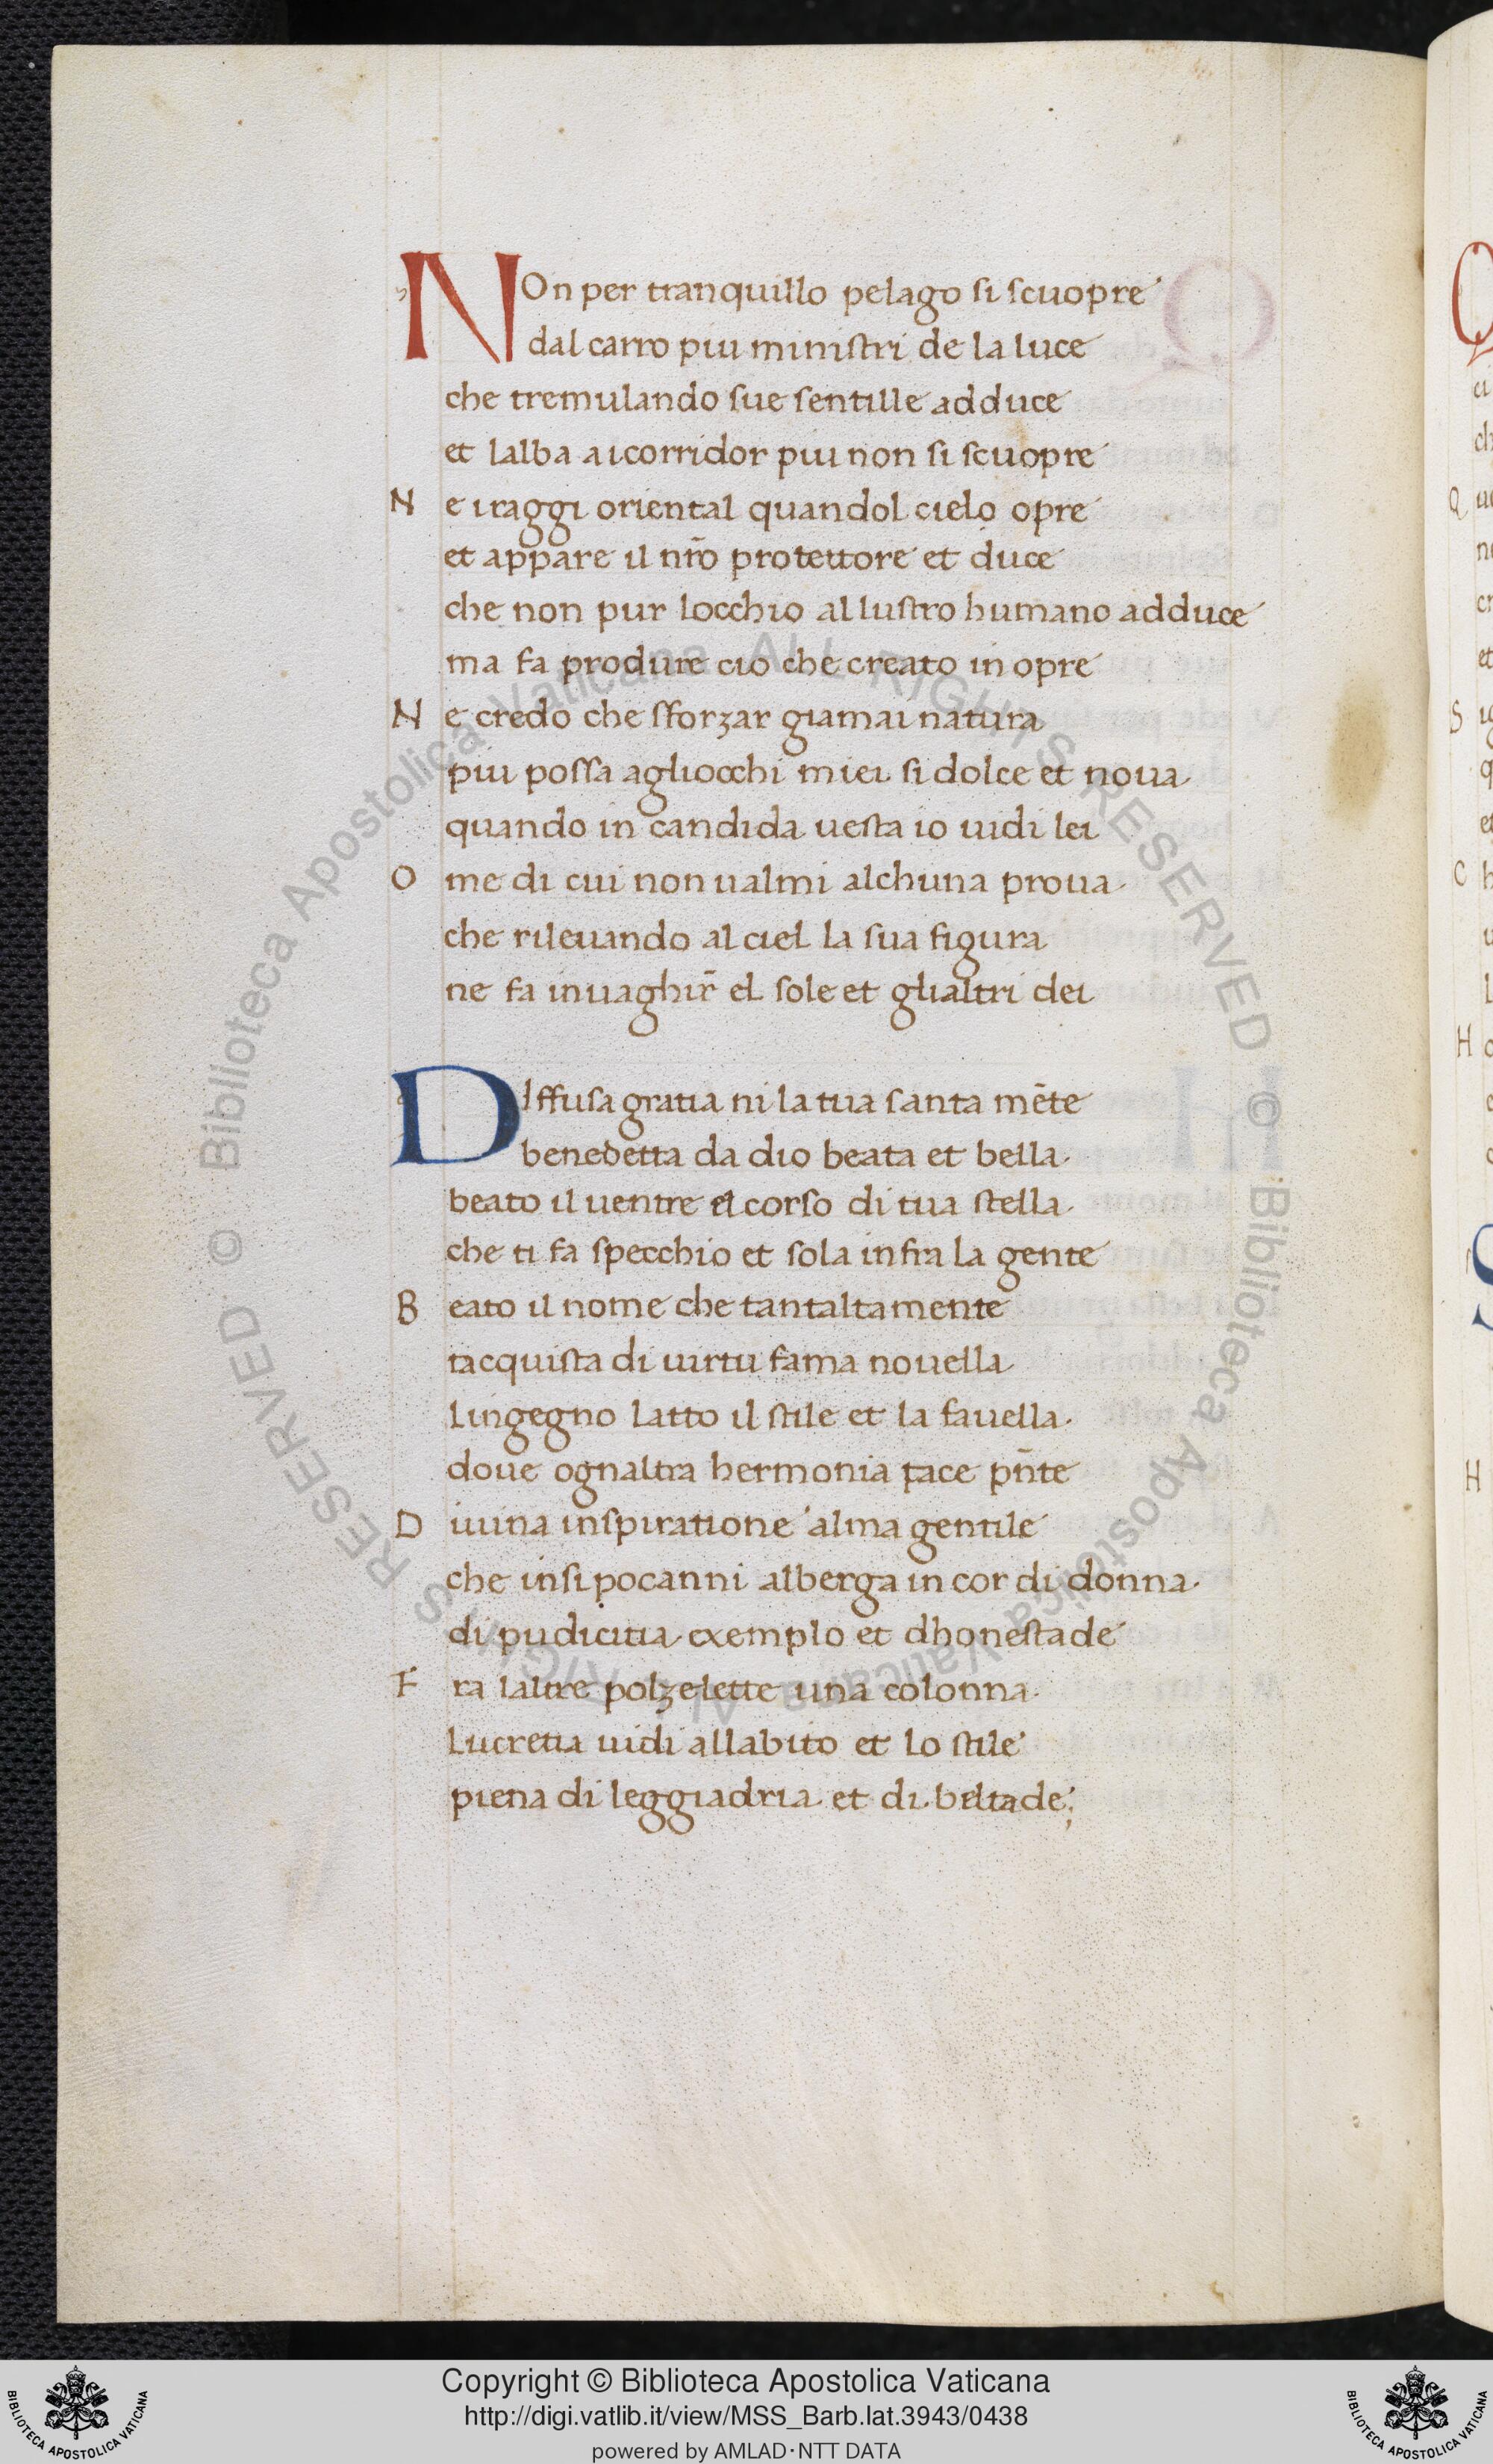 NOn per tranquillo pelago si scuopre
dal carro piu ministri de la luce
che tremulando sue sentille adduce
et lalba ai corridor piu non si scuopre
Ne iraggi oriental quandol cielo opre
et appare il nr̃o protettore et duce
che non pur locchio al lustro humano adduce
ma fa produre cio che creato in opre
Ne credo che sforzar giamai natura
piu possa agliocchi miei si dolce et noua
quando in candida uesta io uidi lei
Ome di cui non ualmi alchuna proua
che rileuando al ciel la sua figura
ne fa inuaghir̃ el sole et glialtri dei
DIffusa gratia ni la tua santa mẽte
benedetta da dio beata et bella
beato il uentre el corso di tua stella
che ti fa specchio et sola infra la gente
Beato il nome che tantaltamente
tacquista di uirtu fama nouella
Lingegno latto il stile et la fauella
doue ognaltra hermonia tace pñte
Diuina inspiratione alma gentile
che insi pocanni alberga in cor di donna
di pudicitia exemplo et dhonestade
Fra laltre polzelette una colonna
Lucretia uidi allabito et lo stile
piena di leggiadria et di beltade;
Copyright © Biblioteca Apostolica Vaticana
http://digi.vatlib.it/view/MSS_Barb.lat.3943/0438
powered by AMLAD·NTT DATA